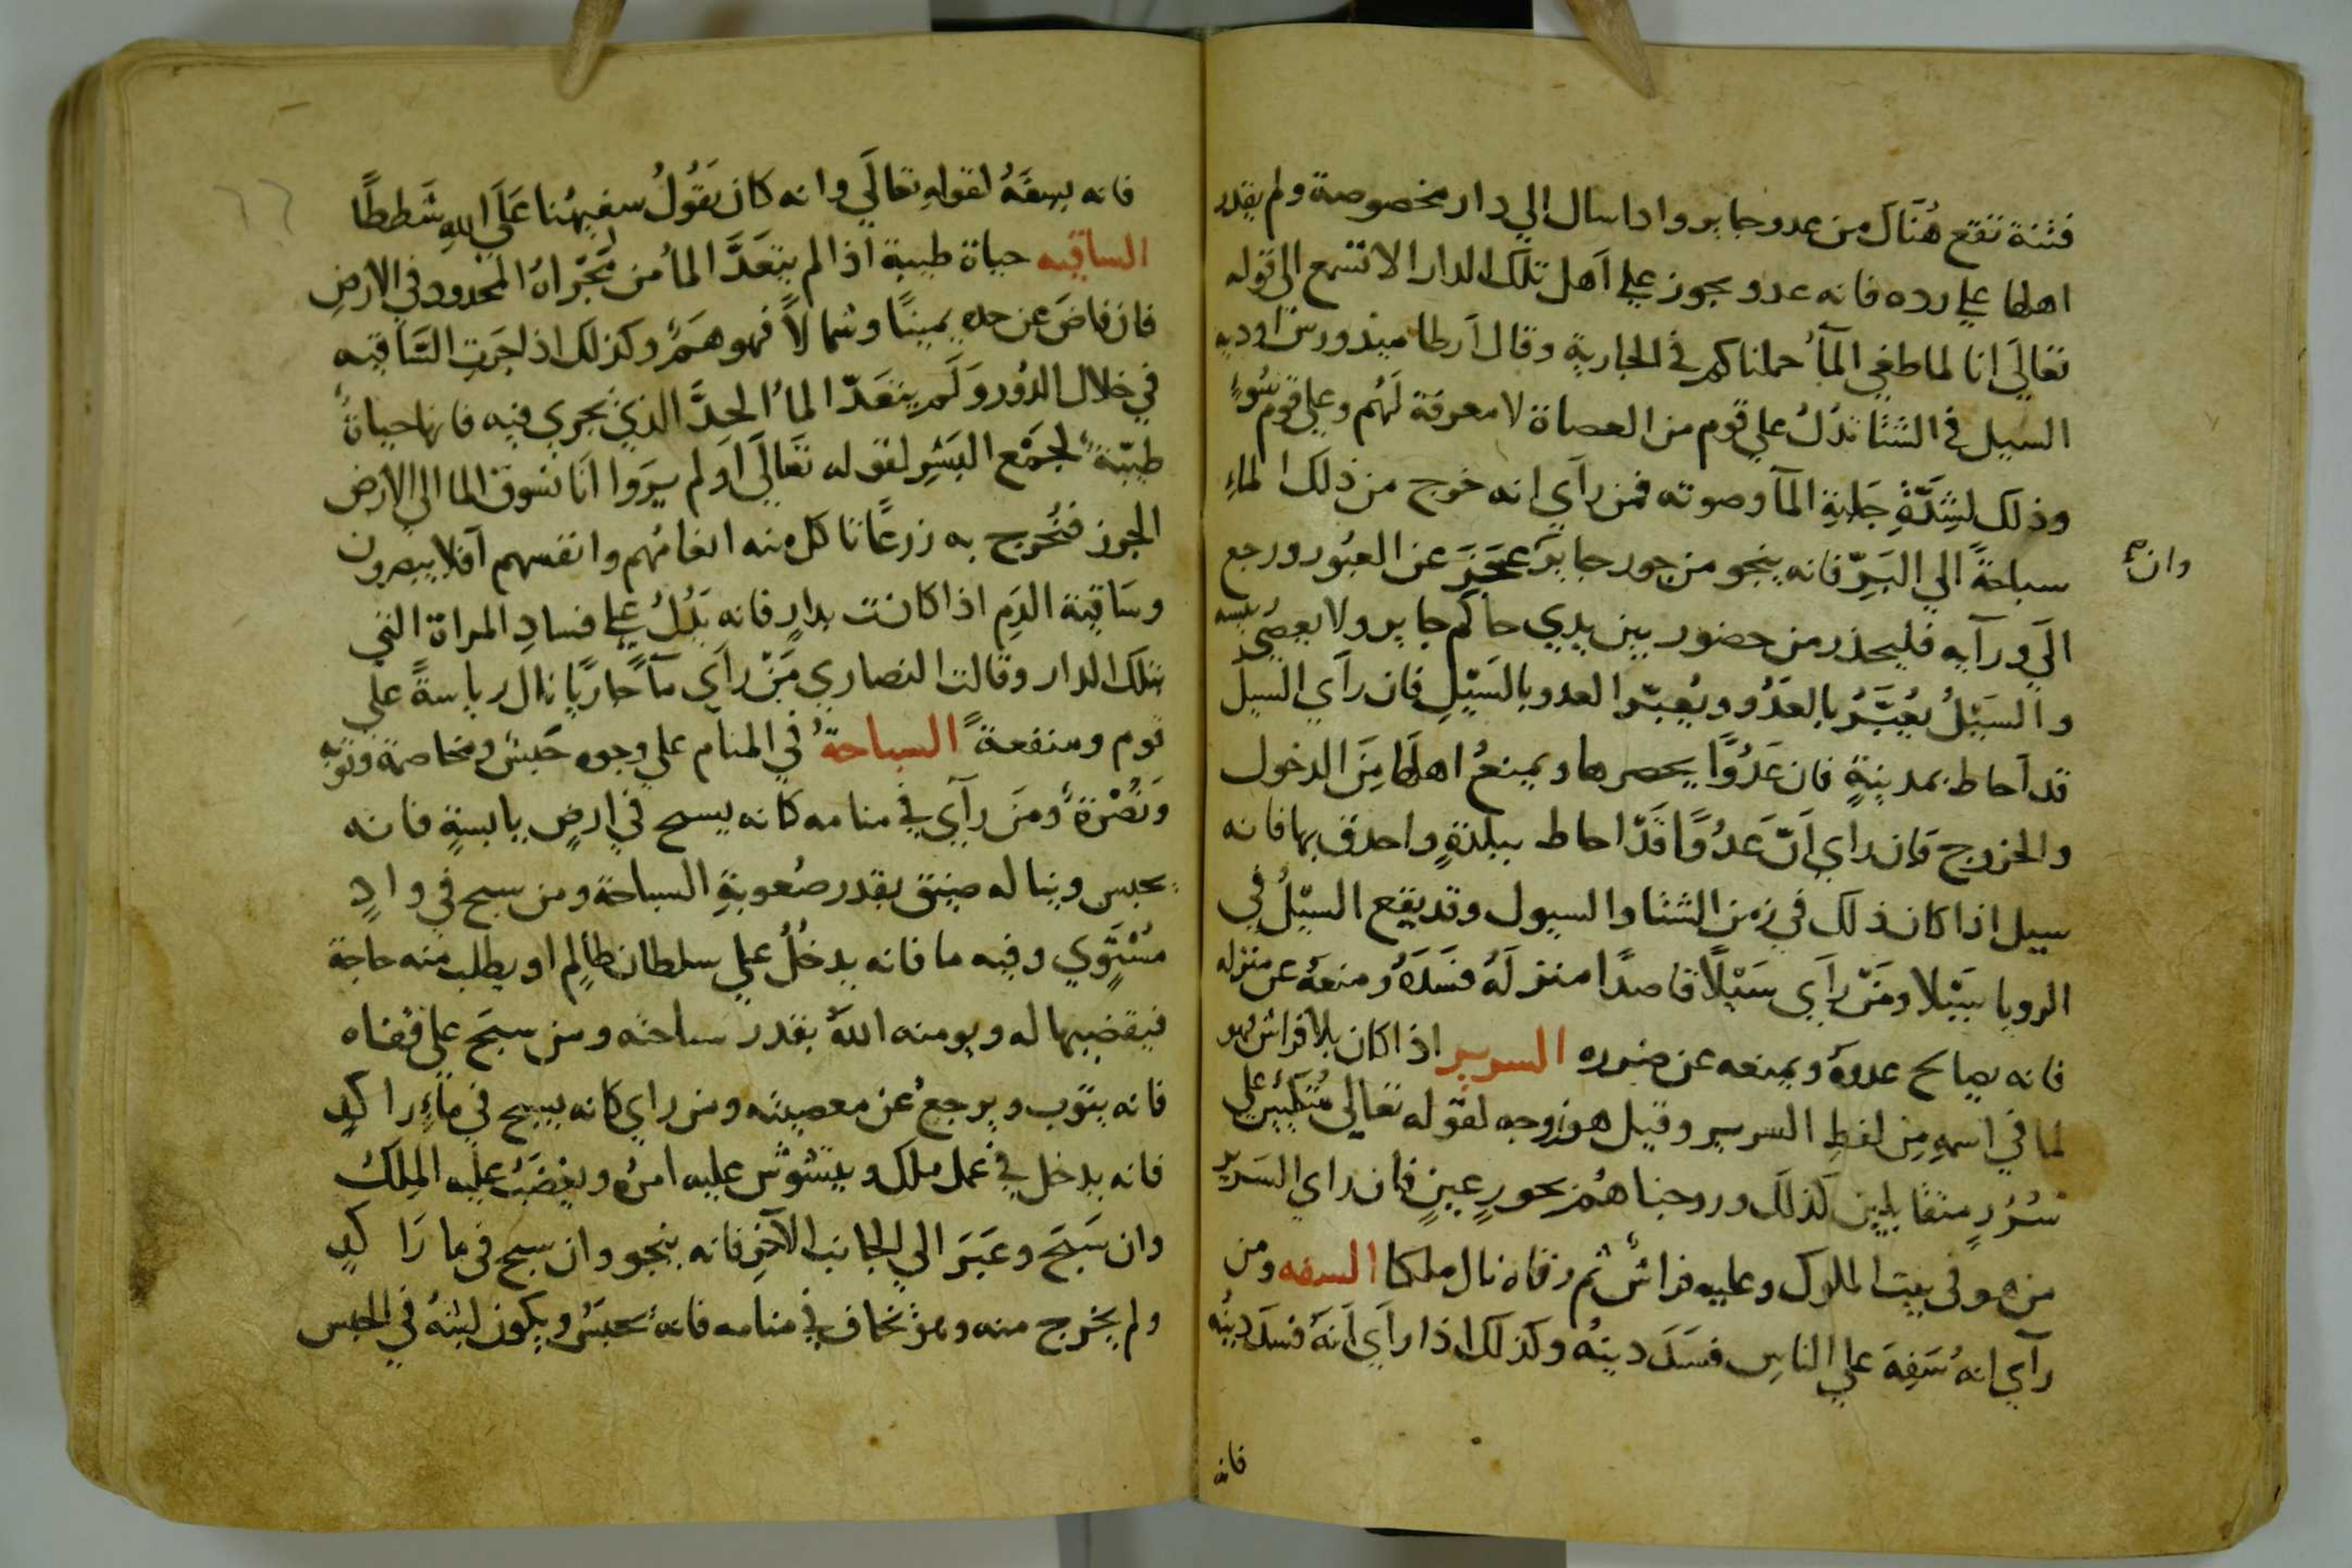 فتنة تقع هُنَاكَ من عدو جاير واداسال الي دار مخصوصة ولم يقدر
اهلها علي رده فانه عدو يجوز علي اَهل تلك الدار الا تسمع الى قوله
تعالَي انا لما طغي المآء حملناكم في الجارية وقال ارطاميدورس اوديه
السيل في الشتا تدُل علي قوم من العصاة لا معرفة لَهُم وعلي قوم سُوءٍ
وذلك لشِدَّةِ جَلبةِ المآ وصوته فمن رآي انه خرج من ذلك الماءِ
سباحةً الي البَرِّ فانه ينجو من جور جابر عجَزَ عن العبُور ورجع
وان
الَي ورآيه فليحذر من حضور بين يدي حاكم جاير ولا يعصي
والسَيْلُ يُعَبَّرُ بالعَدُو ويُعبّر العدو بالسَيْلِ فان رآي السيل
قد اَحاط بمدينةٍ فان عَدُوًّا يحصرها ويمنعُ اهلَها مِنَ الدخول
والخروج فان راي اَنّ عَدُوًّا قَدْ احاط ببلدةٍ واحدق بها فانه
سيل اذا كان ذلك في زمن الشتا والسيول وقد يقع السيْلُ في
الرويا سَيْلا ومَنْ رآي سَيْلًا قاصدًا منزلَهُ فسَدَّهُ ومنعهُ عن منزله
فانه يصالح عدوهُ ويمنعه عن ضرره السرير اذا كان بلا فراش فهو
لما في اسمهِ مِن لفظِ السرير وقيل هو زوجه لقوله تعالي مُتكيين علي
سُرُرٍ متقابلين كذلك وزوجناهُم بحورٍ عِينٍ فان راي السَرير
من هو في بيت الملوك وعليه فراش ثم رقاه نال ملكا السفه ومن
رآي انهُ سَفِهَ علي الناسِ فسَدَ دينُه وكذلك اذا رآي اَنهُ فسَدَ دينُه
فانه
فانه يسفَهُ لقولهِ تعالَي وانه كان يَقُولُ سفيهُنا عَلَي اللهِ شَططًا
الساقيه حياة طيبة اذا لم يتعَدَّ الماُ من مَجْراهُ المحدود في الارضِ
فان فاضَ عن حدهِ يمينًا وشمالًا فهو هَمٌ وكذلك اذا جَرتِ السَّاقيه
في خلال الدُورِ وَلَم يتعَدّ الماُ الحدَّ الذي يجري فيه فانها حياةٌ
طيّبةٌ لجمْعِ البَشرِ لقوله تَعَالَي اَولم يَرَوا اَنا نسُوق الما الي الارض
الجرز فنُخرج به زرعًا تاكل منه انعامُهم وانفسهم اَفلا يبصرون
وسَاقية الدَمِ اذا كانت بدارٍ فانه يدُلُ علي فسادِ المراة التي
بتلك الدار وقالت النصاري مَنْ رآي مآً جاريًا نال رياسةً علي
قوم ومنفعةً السباحةُ في المنام علي وجوه حَبسٌ ومخاصمة وتَوبه
وَنُصْرةٌ ومَنَ رآي في منامه كانه يسبح في ارضٍ يابسةٍ فانه
يحبس ويناله ضيق بقدر صُعوبةِ السباحة ومن سبح في وادٍ
مُسْتَوي وفيه ما فانه يدخُلُ علي سلطان ظالِم او يطلب منه حاجة
فيقضيها له ويومنه اللهُ بقدر سباحته ومن سبَح علي قفاه
فانه يتوب ويرجعُ عن معصيته ومن راي كانه يسبح في ماءٍ راكدٍ
فانه يدخل في عمل ملك ويتشوَّش عليه امرُه ويغضَبُ عليه الملِكُ
وان سَبَح وعَبَر الي الجانب الآخرِ فانه ينجو وان سبح في ما رَاكدٍ
ولم يخرج منه وهو يخاف في منامه فانهُ يحبَسُ ويكون لبثهُ في الحبس